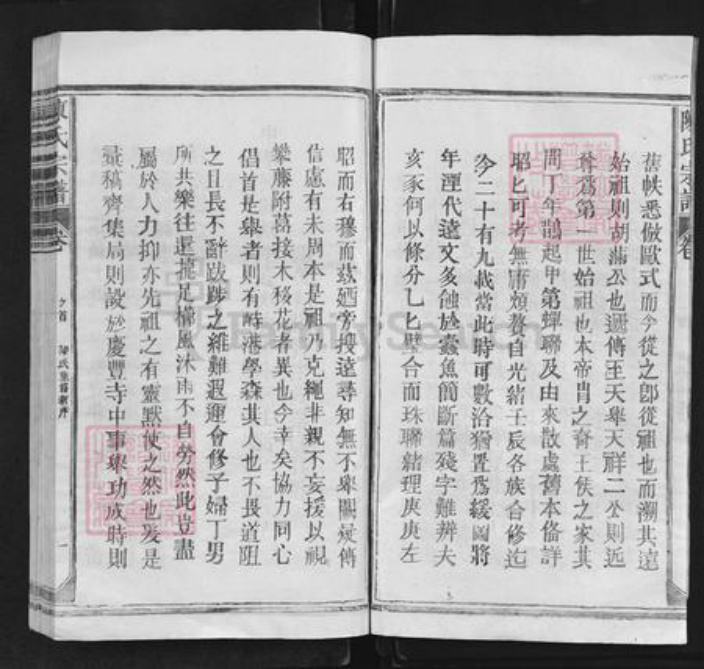 舊帙悉倣歐式而今從之卽從祖也而溯其遠
始祖則胡滿公也遞傳至天舉天祥二公則近
尊爲第一世始祖也本帝胄之裔王侯之家其
間丁年鵲起甲第蟬聯及由來散處舊本俻詳
昭匕可考無庸煩贅自光緒壬辰各族合修迄
今二十有九載當此時可數洽猶置爲緩圖將
年湮代遠文多蝕於蠹魚簡斷篇殘字難辨夫
亥豕何以條分乚匕璧合而珠聯緒理庚庚左
昭而右穆而玆廼旁搜遠尋知無不舉闕疑傳
信慮有未周本是祖乃克繩非親不妄援以視
攀藤附葛接木移花者異也今幸矣協力同心
倡首是舉者則有峙港學森其人也不畏道阻
之且長不辭跋踄之維難遐邇會修子婦丁男
所共樂往還 足櫛風沐雨不自勞然此豈盡
屬於人力抑亦先祖之有靈默使之然也爰是
彙稿齊集局則設於慶豐寺中事舉功成時則
陳氏宗譜 卷
之首 陳氏重修新序 一
陳氏宗譜 卷
FamilySearch